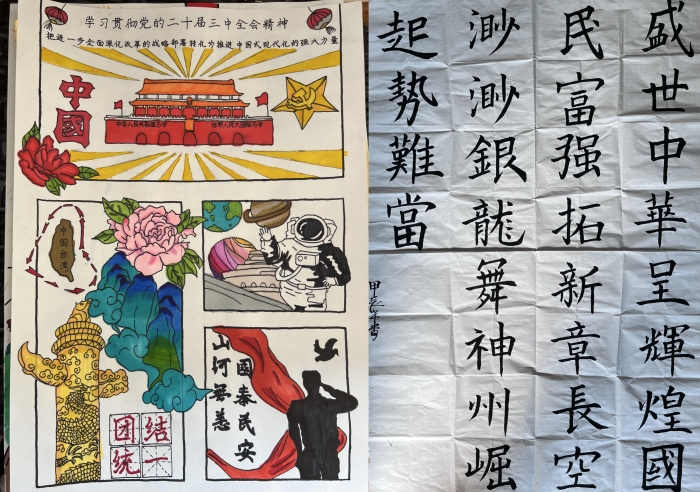 学习贯彻党的二十届三中全会精神
把进一步全面深化改革的战略部署转化为推进中国式现代化的强大力量
中國
中华人民共和国万岁
世界人民大团结万岁
中国台湾
团结
统一
山河无恙
国泰民安
盛世中華呈輝煌國
民富强拓新章長空
渺渺銀龍舞神州崛
起勢難當
甲辰年書